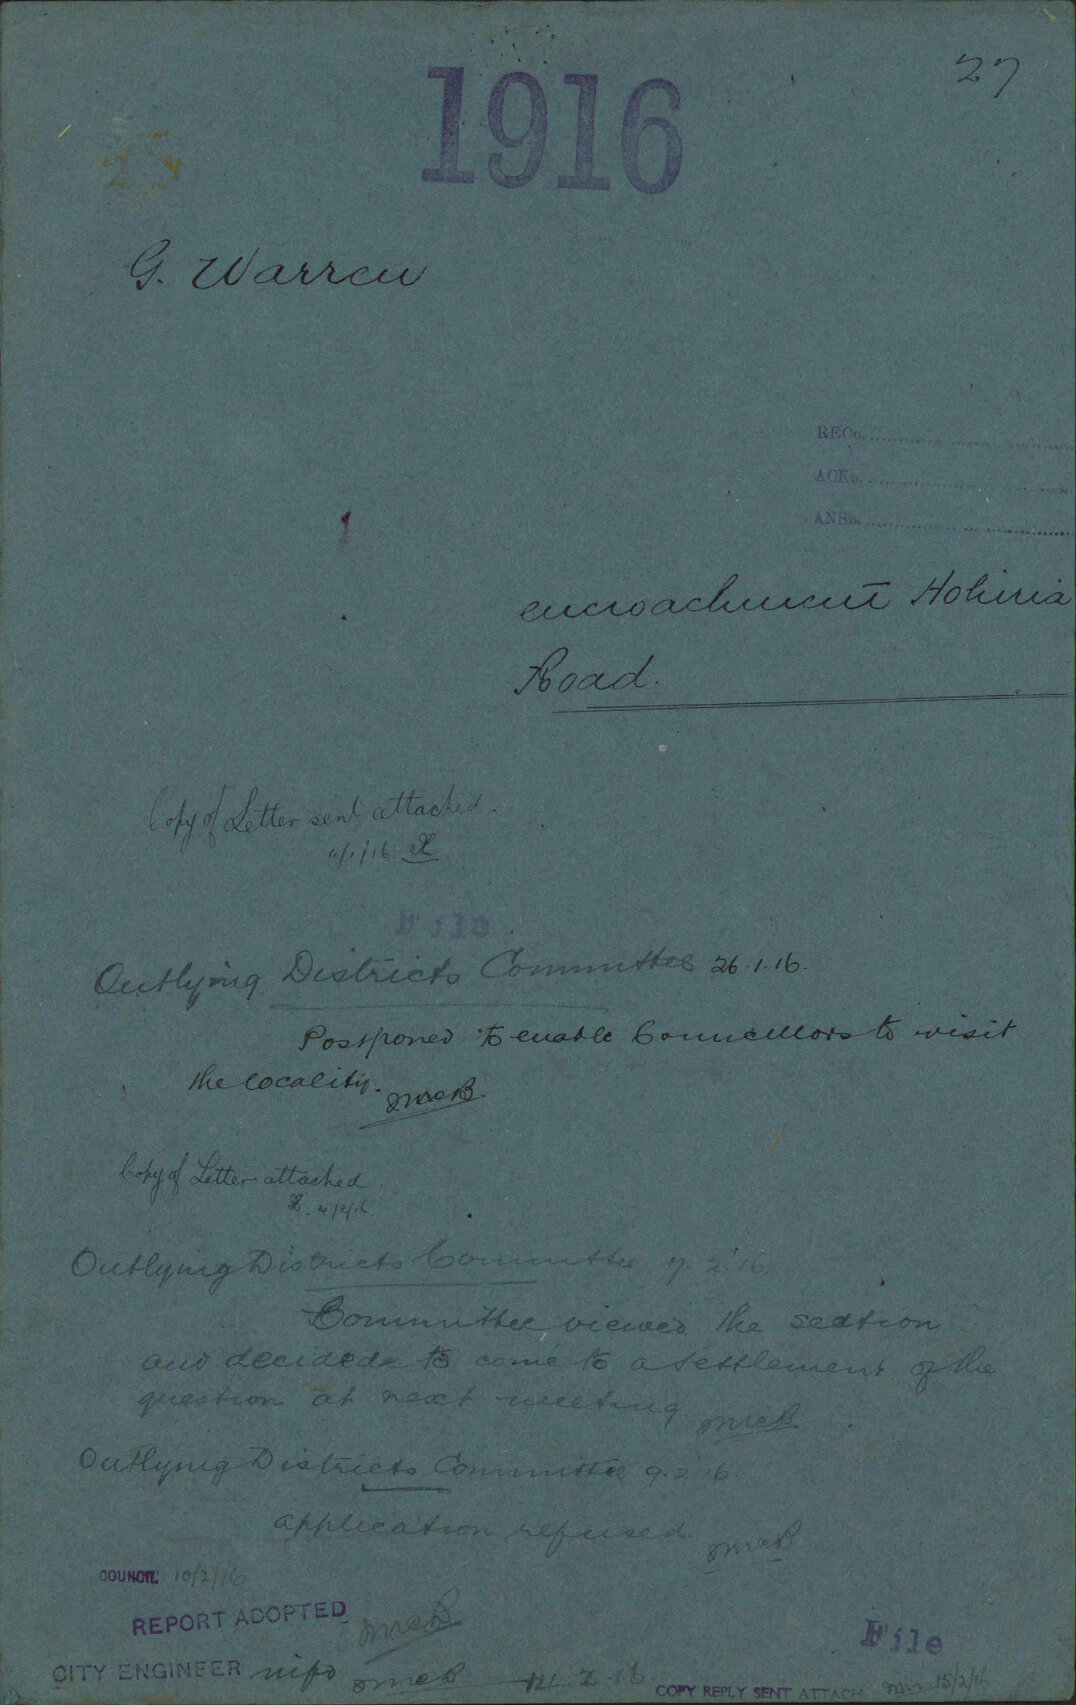 27
1916
G. Warren
RECD.
ACKD.
ANSD.
encroachment Hohiria
Road.
Copy of Letter sent attached.
11/1/16.
File
Outlying Districts Committee 26.1.16.
Postponed to enable Councillors to visit
the locality.
Copy of Letter attached
4/2/16.
Outlying Districts Committee 7.2.16
Committee viewed the section
and decided to come to a settlement of the
question at next meeting
Outlying Districts Committee 9.2.16.
application refused.
COUNCIL 10/2/16
REPORT ADOPTED
File
CITY ENGINEER info 14.2.16
COPY REPLY SENT ATTACH 15/2/16